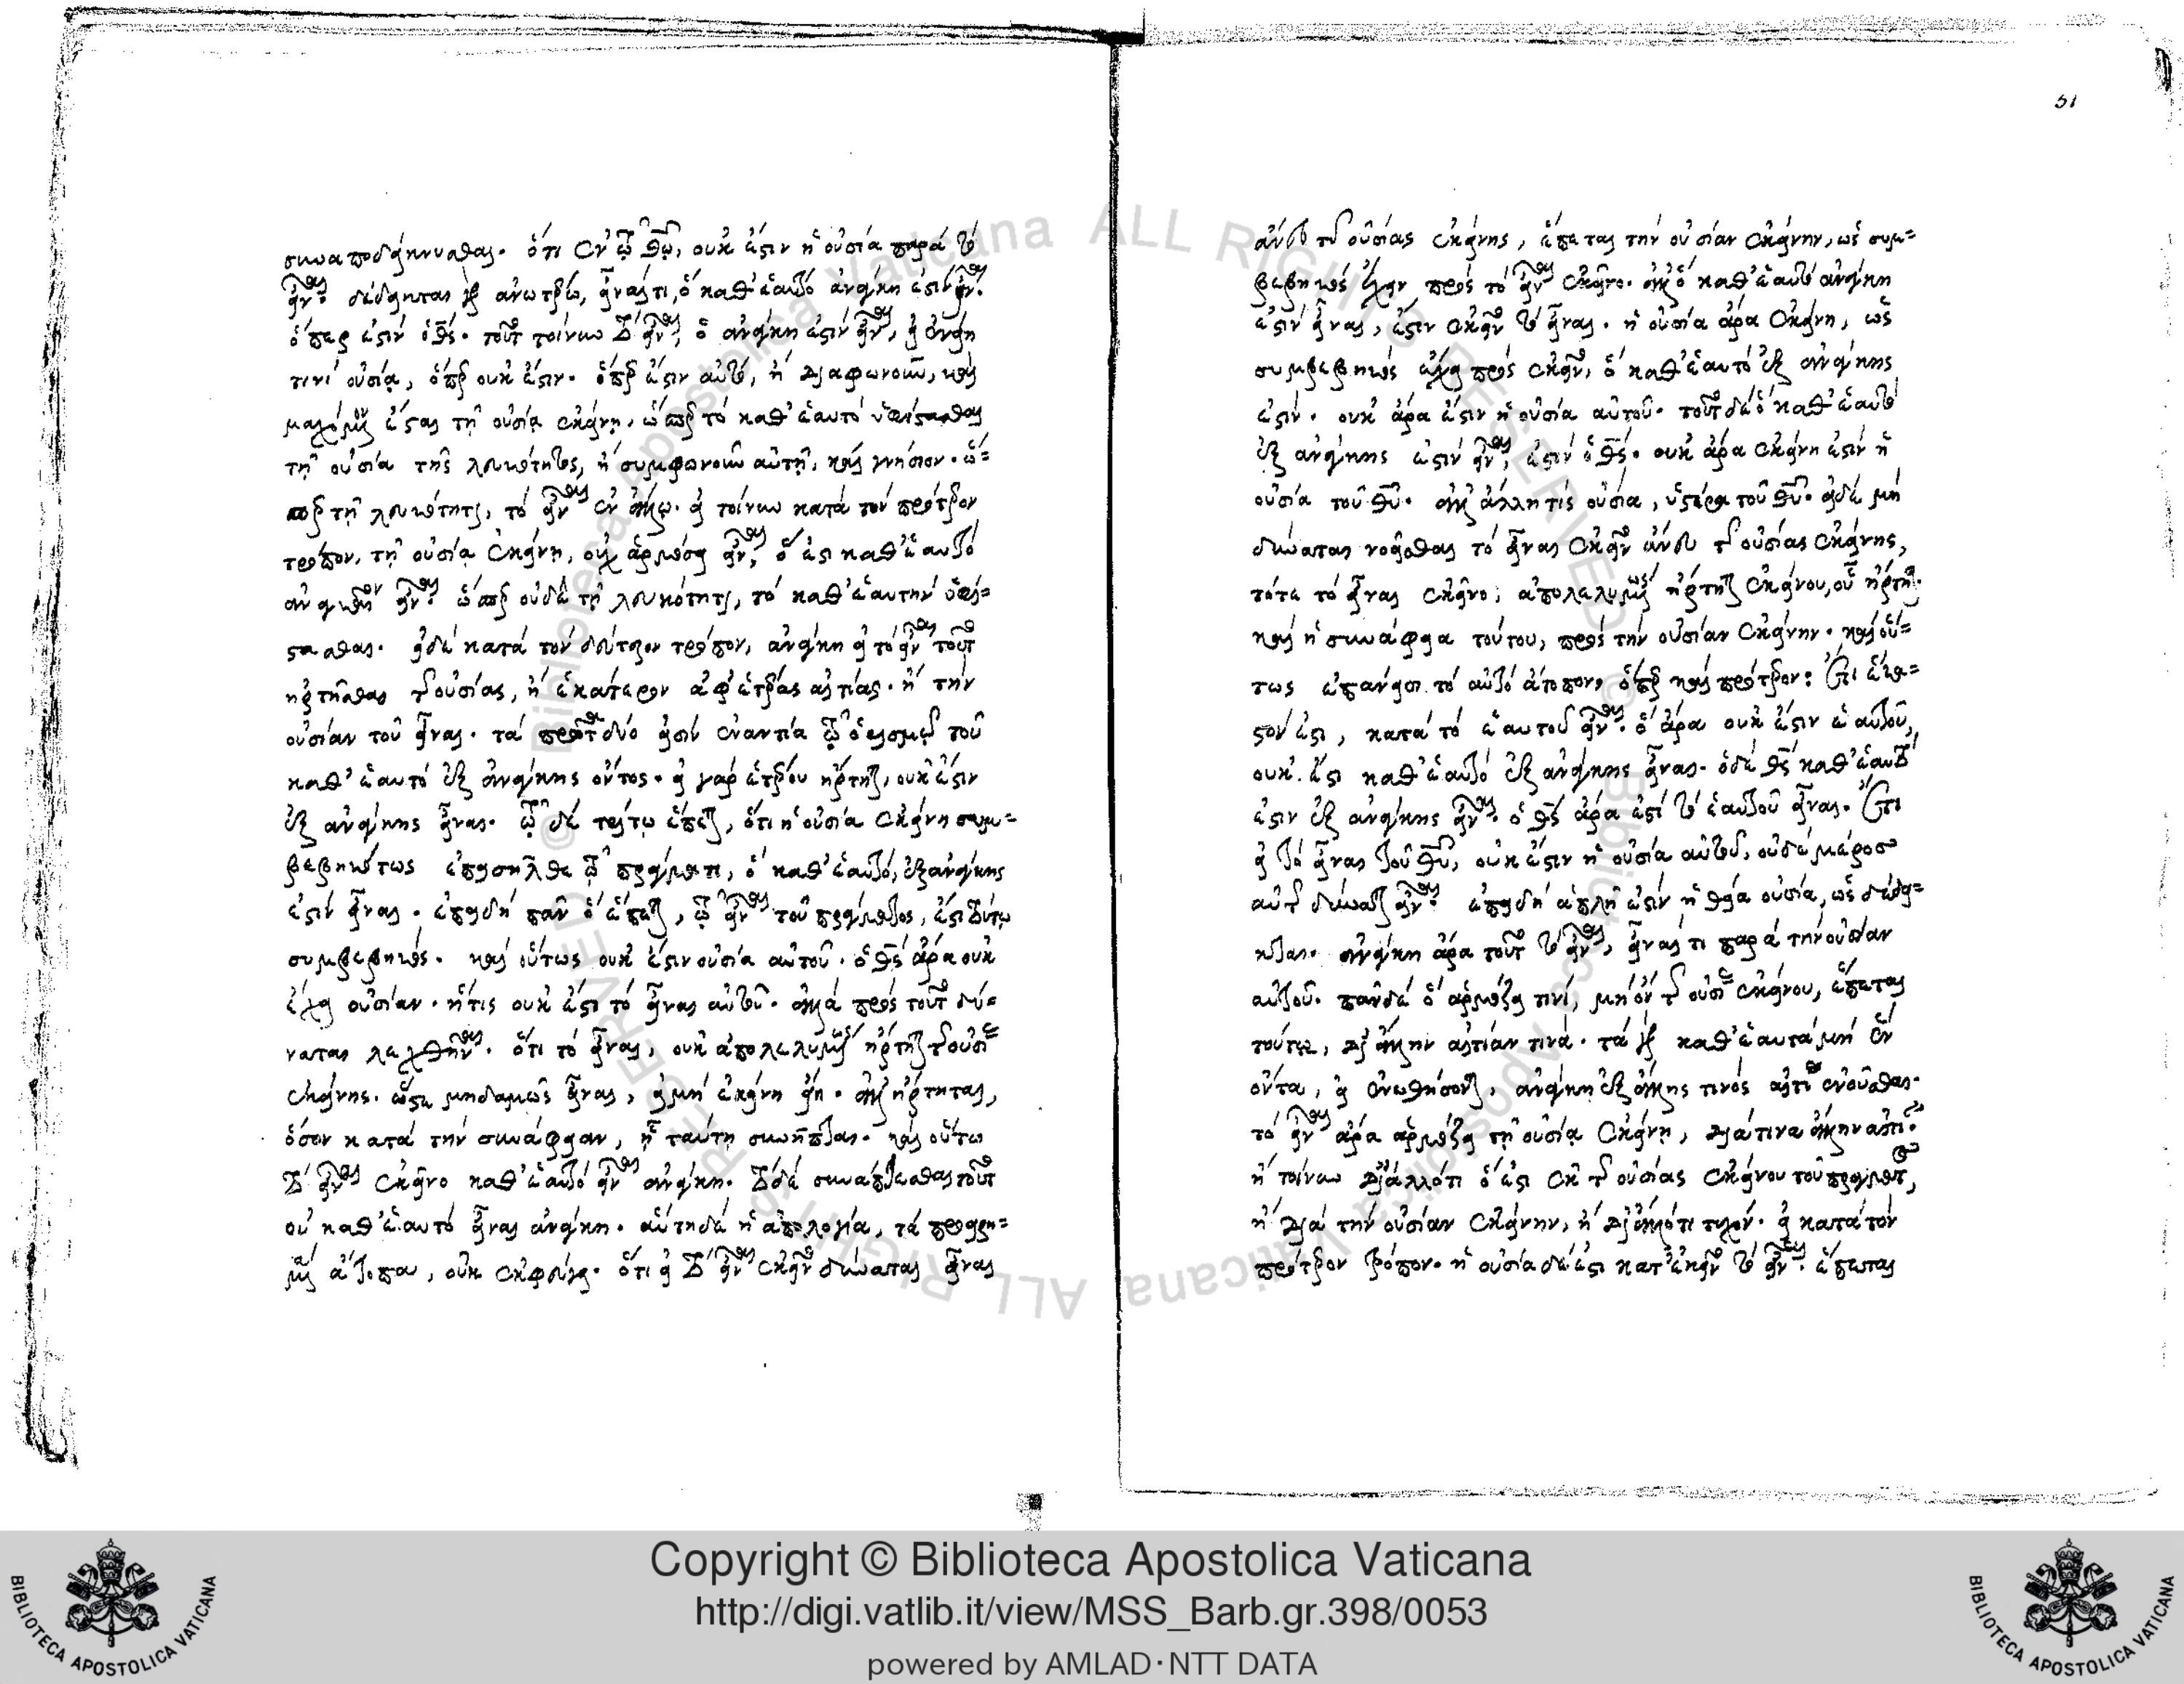 συναποδείκνυσθαι. ὅτι ἐν τῷ θῷ, οὐκ ἔστιν ἡ οὐσία παρὰ τὸ
εἶναι. δέδεικται γὰρ ἀνωτέρω, εἶναί τι, ὃ καθ' ἑαυτὸ ἀνάγκη ἐστὶν εἶναι.
ὅπερ ἐστὶν ὁ θς. τοῦτο τοίνυν τὸ εἶναι, ὃ ἀνάγκη ἐστὶν εἶναι, εἰ ἀνήκει
τινὶ οὐσίᾳ, ὅπερ οὐκ ἔστιν. ὅπερ ἔστιν αὐτό, ἢ διαφωνοῦν, καὶ
μαχόμενον ἔσται τῇ οὐσίᾳ ἐκείνῃ, ὥσπερ τὸ καθ' ἑαυτὸ ὑφίστασθαι
τῇ οὐσίᾳ τῆς λευκότητος, ἢ συμφωνοῦν αὐτῇ, καὶ γνήσιον. ὥ=
σπερ τῇ λευκότητι, τὸ εἶναι ἐν ἄλλῳ. εἰ τοίνυν κατὰ τὸν πρότερον
τρόπον, τῇ οὐσίᾳ ἐκείνῃ, οὐχ ἁρμόσει εἶναι, ὅ ἐστι καθ' ἑαυτὸ
ἀναγκαῖον εἶναι. ὥσπερ οὐδὲ τῇ λευκότητι, τὸ καθ' ἑαυτὴν ὑφί=
στασθαι. εἰ δὲ κατὰ τὸν δεύτερον τρόπον, ἀνάγκη ἢ τὸ εἶναι τοῦτο
ἠρτῆσθαι τῆς οὐσίας, ἢ ἑκάτερον ἀφ' ἑτέρας αἰτίας. ἢ τὴν
οὐσίαν τοῦ εἶναι. τὰ πρῶτα δύο εἰσὶν ἐναντία τῷ ὁρισμῷ τοῦ
καθ' ἑαυτὸ ἐξ ἀνάγκης ὄντος. εἰ γὰρ ἑτέρου ἤρτηται, οὐκ ἔστιν
ἐξ ἀνάγκης εἶναι. τῷ δὲ τρίτῳ ἕπεται, ὅτι ἡ οὐσία ἐκείνη συμ=
βεβηκότως ἐπεισῆλθε τῷ πράγματι, ὃ καθ' ἑαυτό, ἐξ ἀνάγκης
ἐστὶν εἶναι. ἐπειδὴ πᾶν ὃ ἕπεται, τῷ εἶναι τοῦ πράγματος, ἔστι τούτῳ
συμβεβηκός. καὶ οὕτως οὐκ ἔστιν οὐσία αὐτοῦ. ὁ θς ἄρα οὐκ
ἔχει οὐσίαν. ἥτις οὐκ ἔστι τὸ εἶναι αὐτοῦ. ἀλλὰ πρὸς τοῦτο δύ=
ναται λεχθῆναι. ὅτι τὸ εἶναι, οὐκ ἀπολελυμένως ἤρτηται τῆς οὐσίας
ἐκείνης. ὥστε μηδαμῶς εἶναι, εἰ μὴ ἐκείνη εἴη. ἀλλ' ἤρτηται,
ὅσον κατὰ τὴν συνάφειαν, ᾗ ταύτῃ συνῆπται. καὶ οὕτω
τὸ εἶναι ἐκεῖνο καθ' ἑαυτὸ εἶναι ἀνάγκη. τὸ δὲ συνάπτεσθαι τοῦτο
οὐ καθ' ἑαυτὸ εἶναι ἀνάγκη. αὕτη δὲ ἡ ἀπολογία, τὰ προειρη=
μένα ἄτοπα, οὐκ ἐκφεύγει. ὅτι εἰ τὸ εἶναι ἐκεῖνο δύναται εἶναι
51
ἄνευ τῆς οὐσίας ἐκείνης, ἕπεται τὴν οὐσίαν ἐκείνην, ὡς συμ=
βεβηκὸς ἔχειν πρὸς τὸ εἶναι ἐκεῖνο. ἀλλ' ὃ καθ' ἑαυτὸ ἀνάγκη
ἐστὶν εἶναι, ἔστιν ἐκεῖνο τὸ εἶναι. ἡ οὐσία ἄρα ἐκείνη, ὡς
συμβεβηκὸς ἔχει πρὸς ἐκεῖνο, ὃ καθ' ἑαυτὸ ἐξ ἀνάγκης
ἐστίν. οὐκ ἄρα ἔστιν ἡ οὐσία αὐτοῦ. τοῦτο δὲ ὃ καθ' ἑαυτὸ
ἐξ ἀνάγκης ἐστὶν εἶναι, ἐστὶν ὁ θς. οὐκ ἄρα ἐκείνη ἐστὶν ἡ
οὐσία τοῦ θυ. ἀλλ' ἄλλη τις οὐσία, ὑστέρα τοῦ θυ. εἰ δὲ μὴ
δύναται νοεῖσθαι τὸ εἶναι ἐκεῖνο ἄνευ τῆς οὐσίας ἐκείνης,
τότε τὸ εἶναι ἐκεῖνο, ἀπολελυμένως ἤρτηται ἐκείνου, οὗ ἤρτηται
καὶ ἡ συνάφεια τούτου, πρὸς τὴν οὐσίαν ἐκείνην. καὶ οὕ=
τως ἐπάνεισι τὸ αὐτὸ ἄτοπον, ὅπερ καὶ πρότερον: Ἔτι ἕκα=
στόν ἐστι, κατὰ τὸ ἑαυτοῦ εἶναι. ὃ ἄρα οὐκ ἔστιν ἑαυτοῦ,
οὐκ ἔστι καθ' ἑαυτὸ ἐξ ἀνάγκης εἶναι. ὁ δὲ θς καθ' ἑαυτὸ
ἐστιν ἐξ ἀνάγκης εἶναι. ὁ θς ἄρα ἐστὶ τὸ ἑαυτοῦ εἶναι. Ἔτι
εἰ τὸ εἶναι τοῦ θυ, οὐκ ἔστιν ἡ οὐσία αὐτοῦ, οὐδὲ μέρος
αὐτοῦ δύναται εἶναι. ἐπειδὴ ἁπλῆ ἐστιν ἡ θεία οὐσία, ὡς δέδει=
κται. ἀνάγκη ἄρα τοῦτο τὸ εἶναι, εἶναί τι παρὰ τὴν οὐσίαν
αὐτοῦ. πᾶν δὲ ὃ ἁρμόζει τινί, μὴ ὂν τῆς οὐσίας ἐκείνου, ἕπεται
τούτῳ, δι' ἄλλην αἰτίαν τινά. τὰ γὰρ καθ' ἑαυτὰ μὴ ἓν
ὄντα, εἰ ἑνωθήσονται, ἀνάγκη ἐξ ἄλλης τινὸς αἰτίας ἑνοῦσθαι.
τὸ εἶναι ἄρα ἁρμόζει τῇ οὐσίᾳ ἐκείνῃ, διά τινα ἄλλην αἰτίαν.
ἢ τοίνυν δι' ἄλλο τι ὅ ἐστι ἐκ τῆς οὐσίας ἐκείνου τοῦ πράγματος,
ἢ διὰ τὴν οὐσίαν ἐκείνην, ἢ δι' ἄλλό τι τυχόν. εἰ κατὰ τὸν
πρότερον τρόπον. ἡ οὐσία δέ ἐστι κατ' ἐκεῖνο τὸ εἶναι. ἕπεται
Copyright © Biblioteca Apostolica Vaticana
http://digi.vatlib.it/view/MSS_Barb.gr.398/0053
powered by AMLAD·NTT DATA
BIBLIOTECA APOSTOLICA VATICANA
BIBLIOTECA APOSTOLICA VATICANA